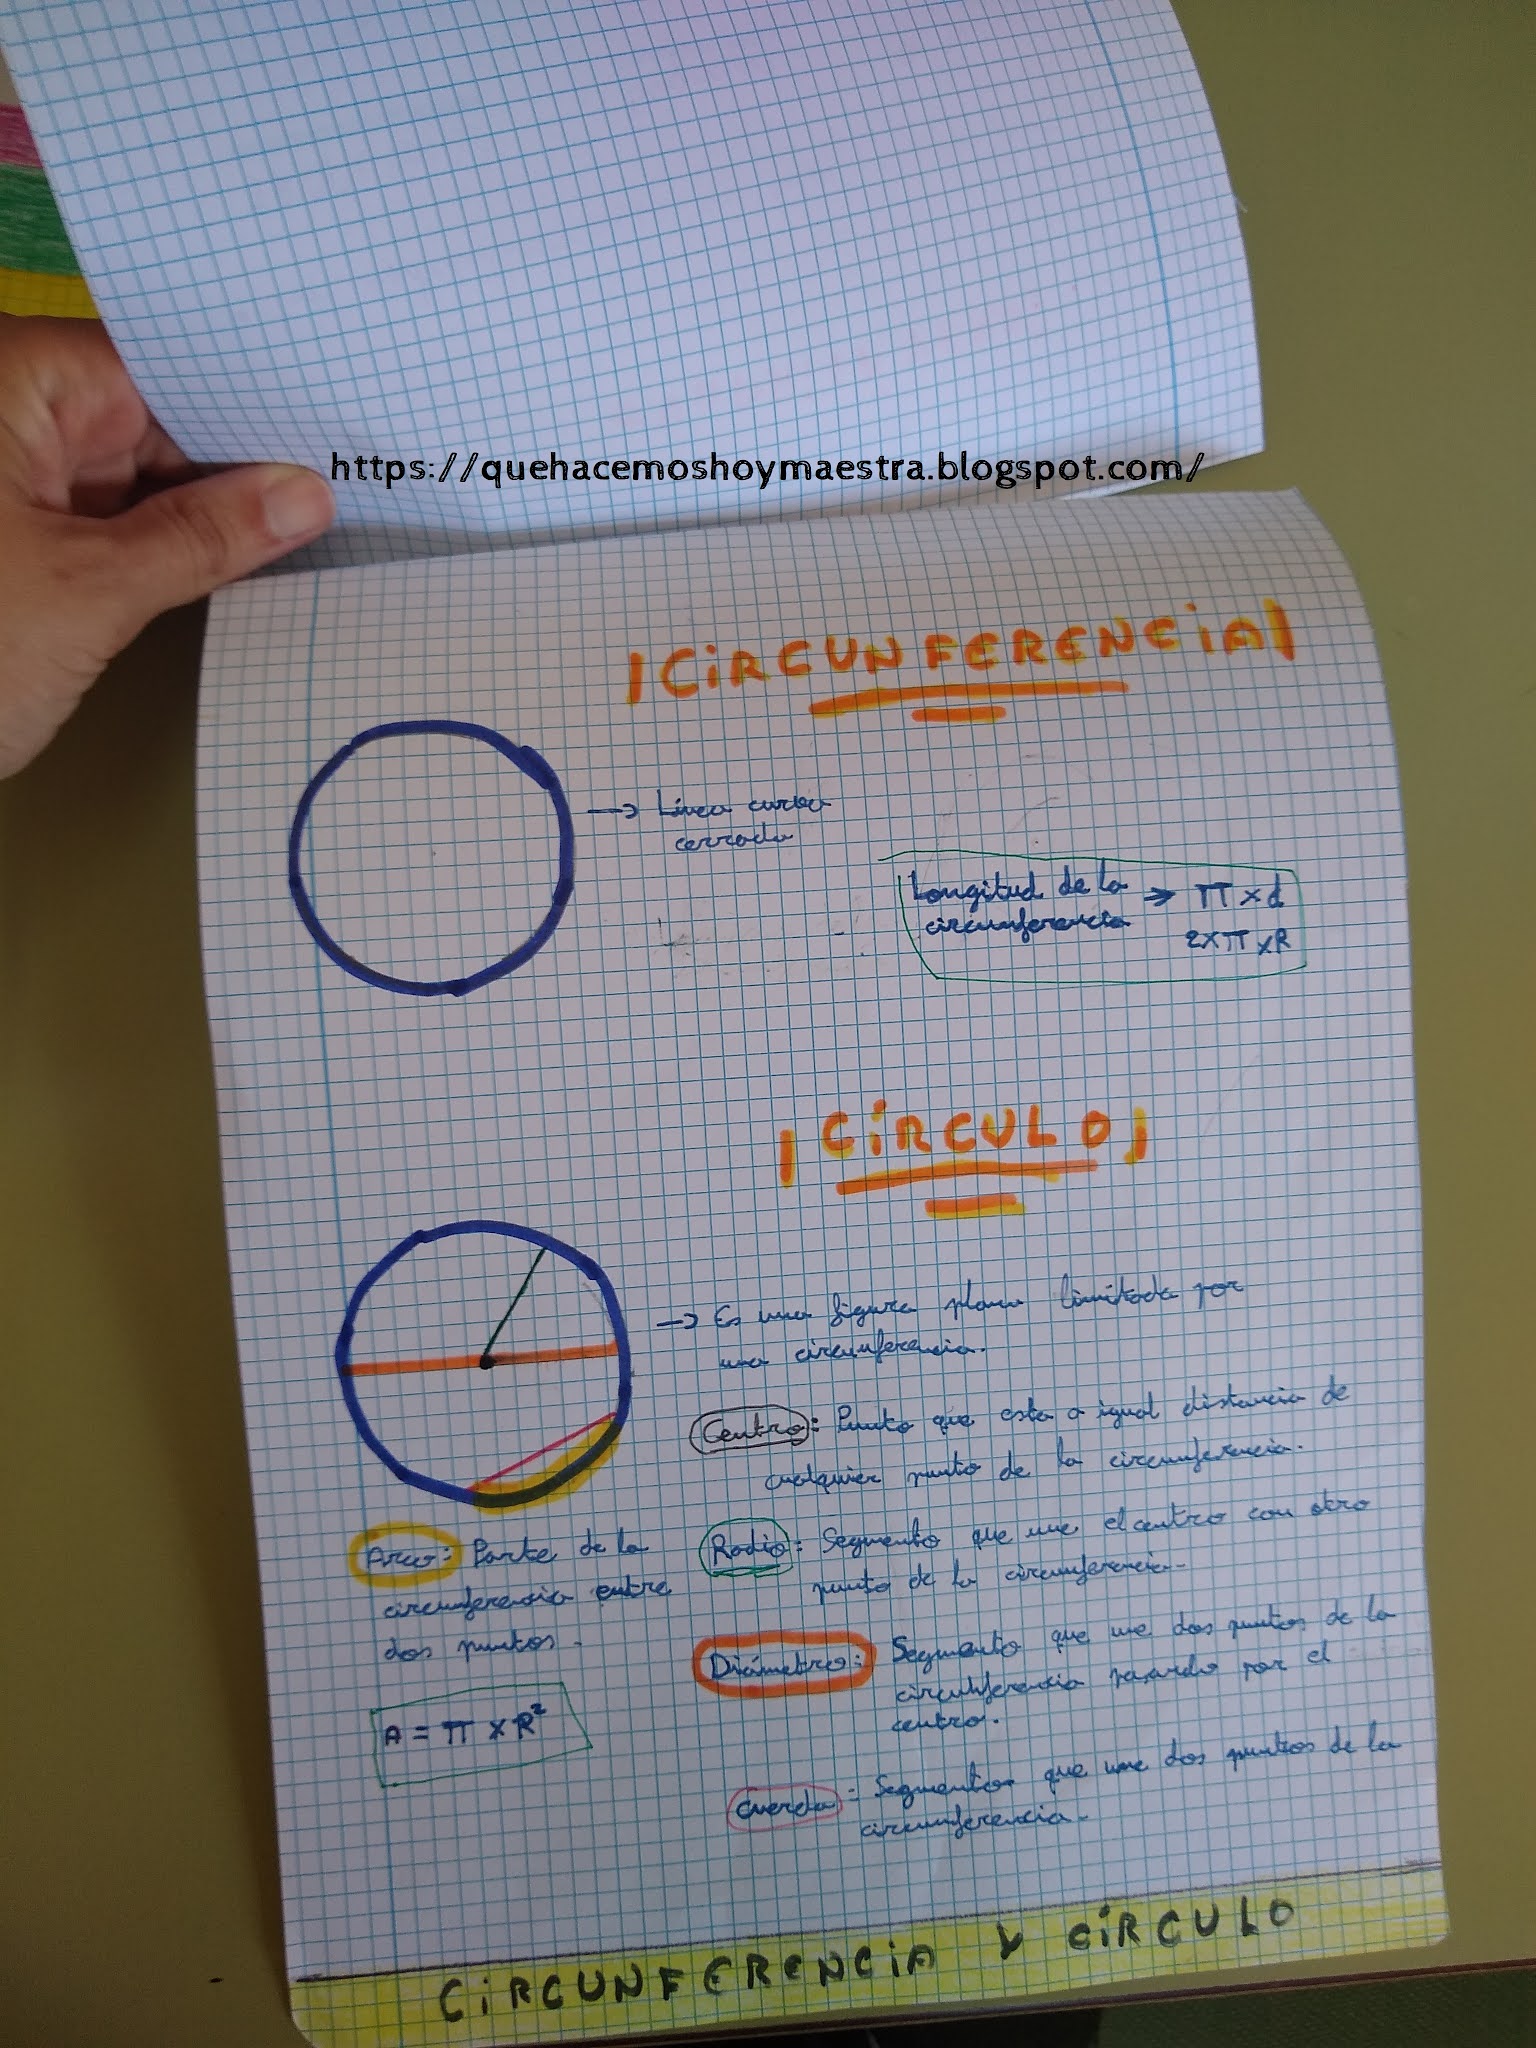 https://quehacemoshoymaestra.blogspot.com/
CIRCUNFERENCIA
→ Línea curva
cerrada
Longitud de la → π x d
circunferencia
2 x π x R
CÍRCULO
→ Es una figura plana limitada por
una circunferencia.
Centro: Punto que esta a igual distancia de
cualquier punto de la circunferencia.
Radio: Segmento que une el centro con otro
punto de la circunferencia.
Diámetro: Segmento que une dos puntos de la
circunferencia pasando por el
centro.
Cuerda: Segmento que une dos puntos de la
circunferencia.
Arco: Parte de la
circunferencia entre
dos puntos.
A = π x R²
CIRCUNFERENCIA Y CÍRCULO